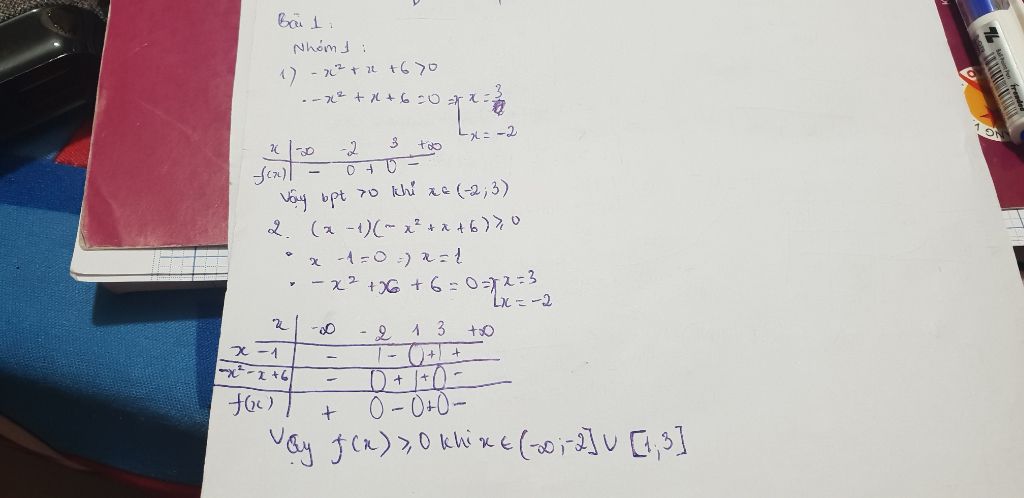 Bài 1:
Nhóm 1:
1) -x² + x + 6 > 0
· -x² + x + 6 = 0 => [ x = 3
x = -2
x | -∞ -2 3 +∞
f(x) | - 0 + 0 -
Vậy bpt > 0 khi x ∈ (-2; 3)
2. (x - 1)(-x² + x + 6) ≥ 0
· x - 1 = 0 => x = 1
· -x² + x + 6 = 0 => [ x = 3
x = -2
x | -∞ -2 1 3 +∞
x - 1 | - | - 0 + | +
-x² - x + 6 | - 0 + | + 0 -
f(x) | + 0 - 0 + 0 -
Vậy f(x) ≥ 0 khi x ∈ (-∞; -2] ∪ [1; 3]